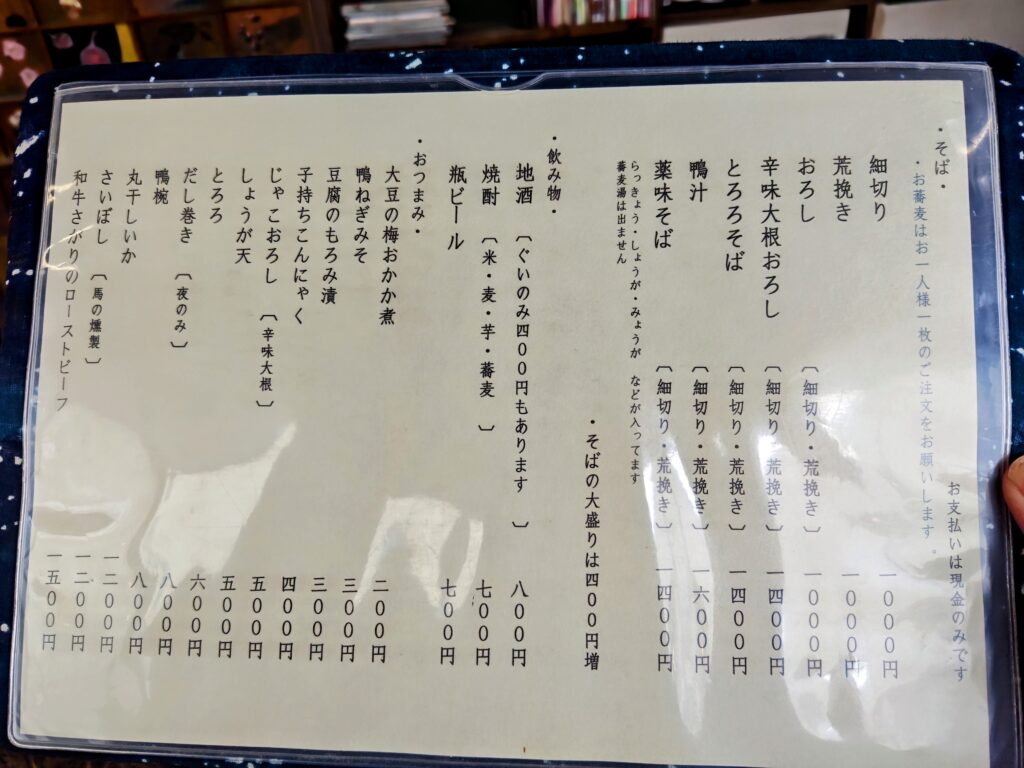 お支払いは現金のみです
・そば・
・お蕎麦はお一人様一枚のご注文をお願いします。
細切り 一０００円
荒挽き 一０００円
おろし 〔細切り・荒挽き〕 一０００円
辛味大根おろし 〔細切り・荒挽き〕 一四００円
とろろそば 〔細切り・荒挽き〕 一四００円
鴨汁 〔細切り・荒挽き〕 一六００円
薬味そば 〔細切り・荒挽き〕 一四００円
らっきょう・しょうが・みょうが などが入ってます
蕎麦湯は出ません
・そばの大盛りは四００円増
・飲み物・
地酒 〔ぐいのみ四００円もあります 〕 八００円
焼酎 〔米・麦・芋・蕎麦 〕 七００円
瓶ビール 七００円
・おつまみ・
大豆の梅おかか煮 二００円
鴨ねぎみそ 三００円
豆腐のもろみ漬 三００円
子持ちこんにゃく 四００円
じゃこおろし 〔辛味大根〕 五００円
しょうが天 五００円
とろろ 六００円
だし巻き 〔夜のみ〕 八００円
鴨椀 八００円
丸干しいか 一二００円
さいぼし 〔馬の燻製〕 一二００円
和牛さがりのローストビーフ 一五００円